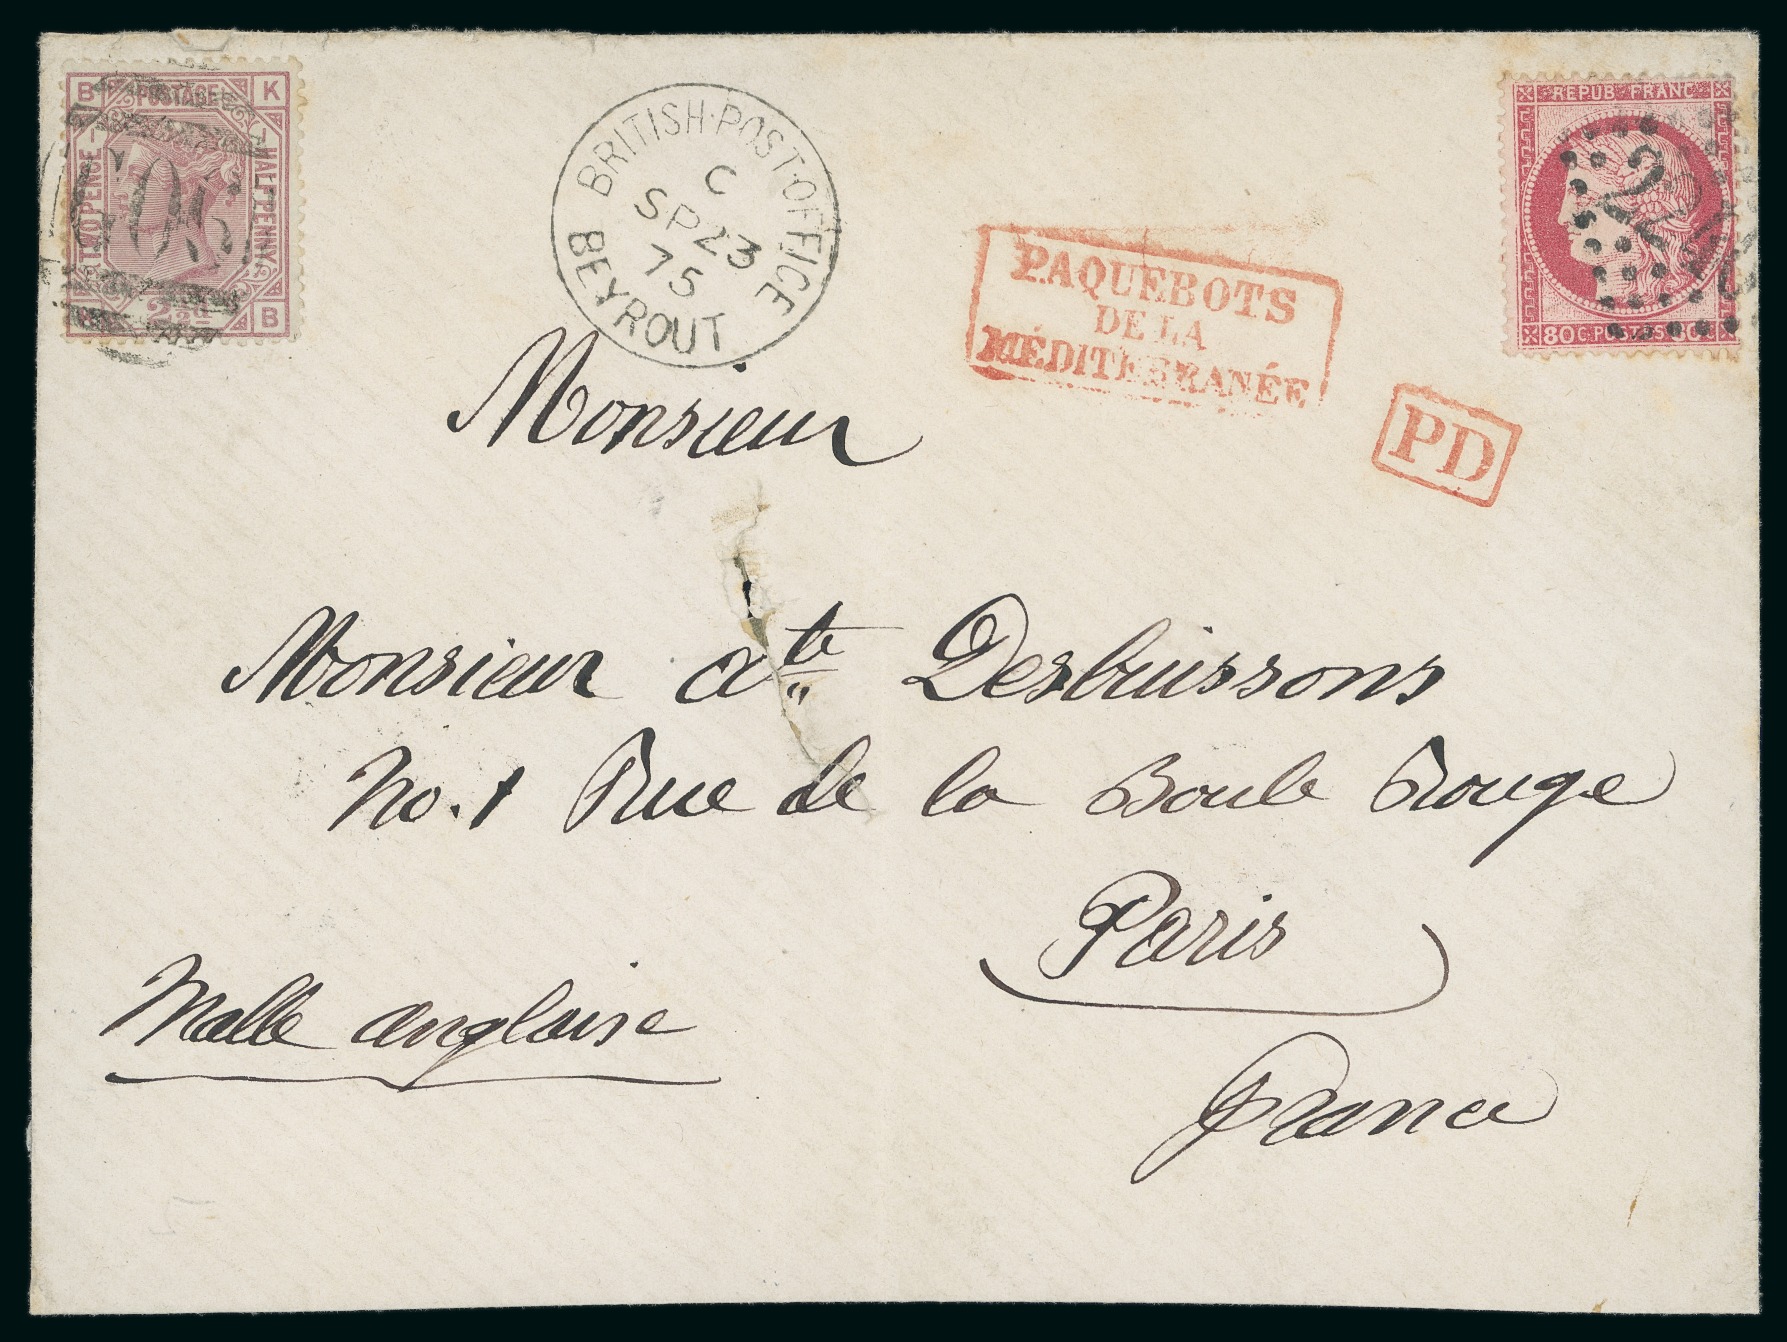 B POSTAGE K
TWOPENCE
HALFPENNY
2½d B
G06
BRITISH·POST·OFFICE
C
SP 23
75
BEYROUT
PAQUEBOTS
DE LA
MÉDITERRANÉE
REPUB·FRANC·
80 C·POSTES·80 C
PD
Monsieur
Monsieur Ate Desbuissons
No. 1 Rue de la Boule Rouge
Paris
Malle anglaise
France